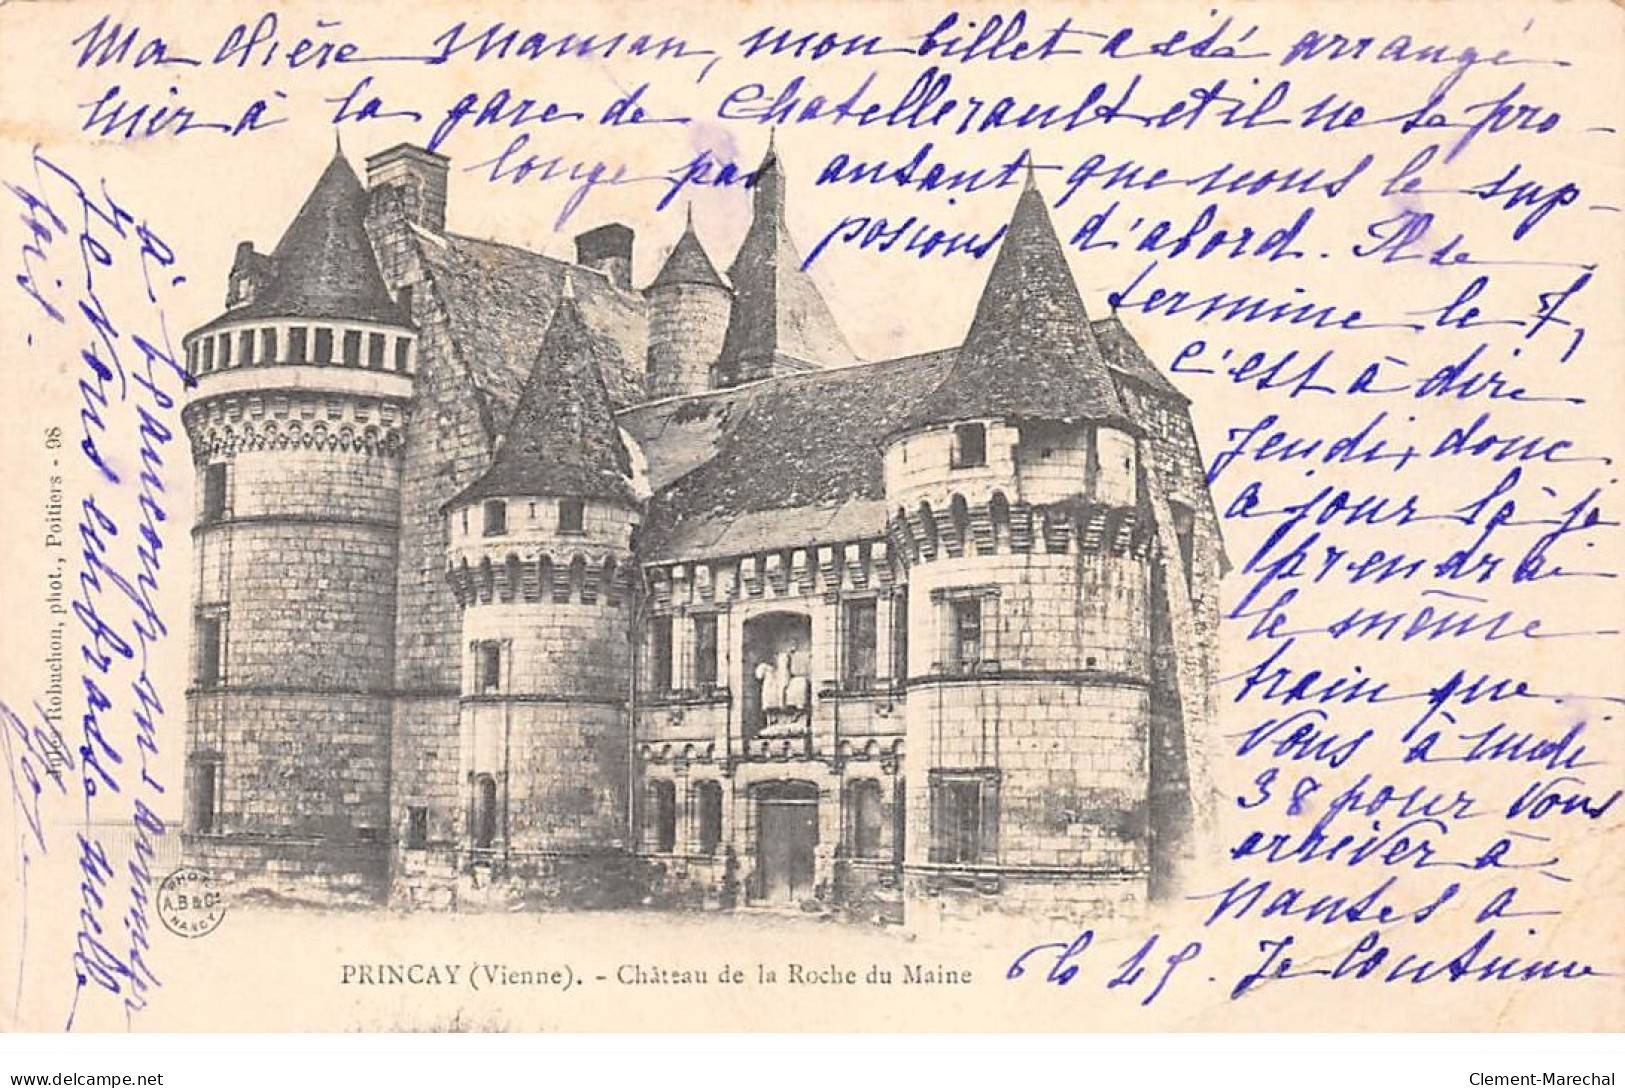 Ma chère Maman, mon billet a été arrangé
hier à la gare de Chatellerault et il ne se pro-
longe pas autant que nous le sup-
posions d'abord. Il se
termine le 7,
c'est à dire
Jeudi, donc
ce jour là je
prendrai
le même
train que
vous à midi
38 pour vous
arriver à
Nantes à
6h 45. Je continue
à m'amuser
Je vous embrasse
fois.
Jules Robuchon, phot., Poitiers - 98
PHOT
A.B&Cie
NANCY
PRINCAY (Vienne). - Château de la Roche du Maine
delcampe.net
Clement-Marechal